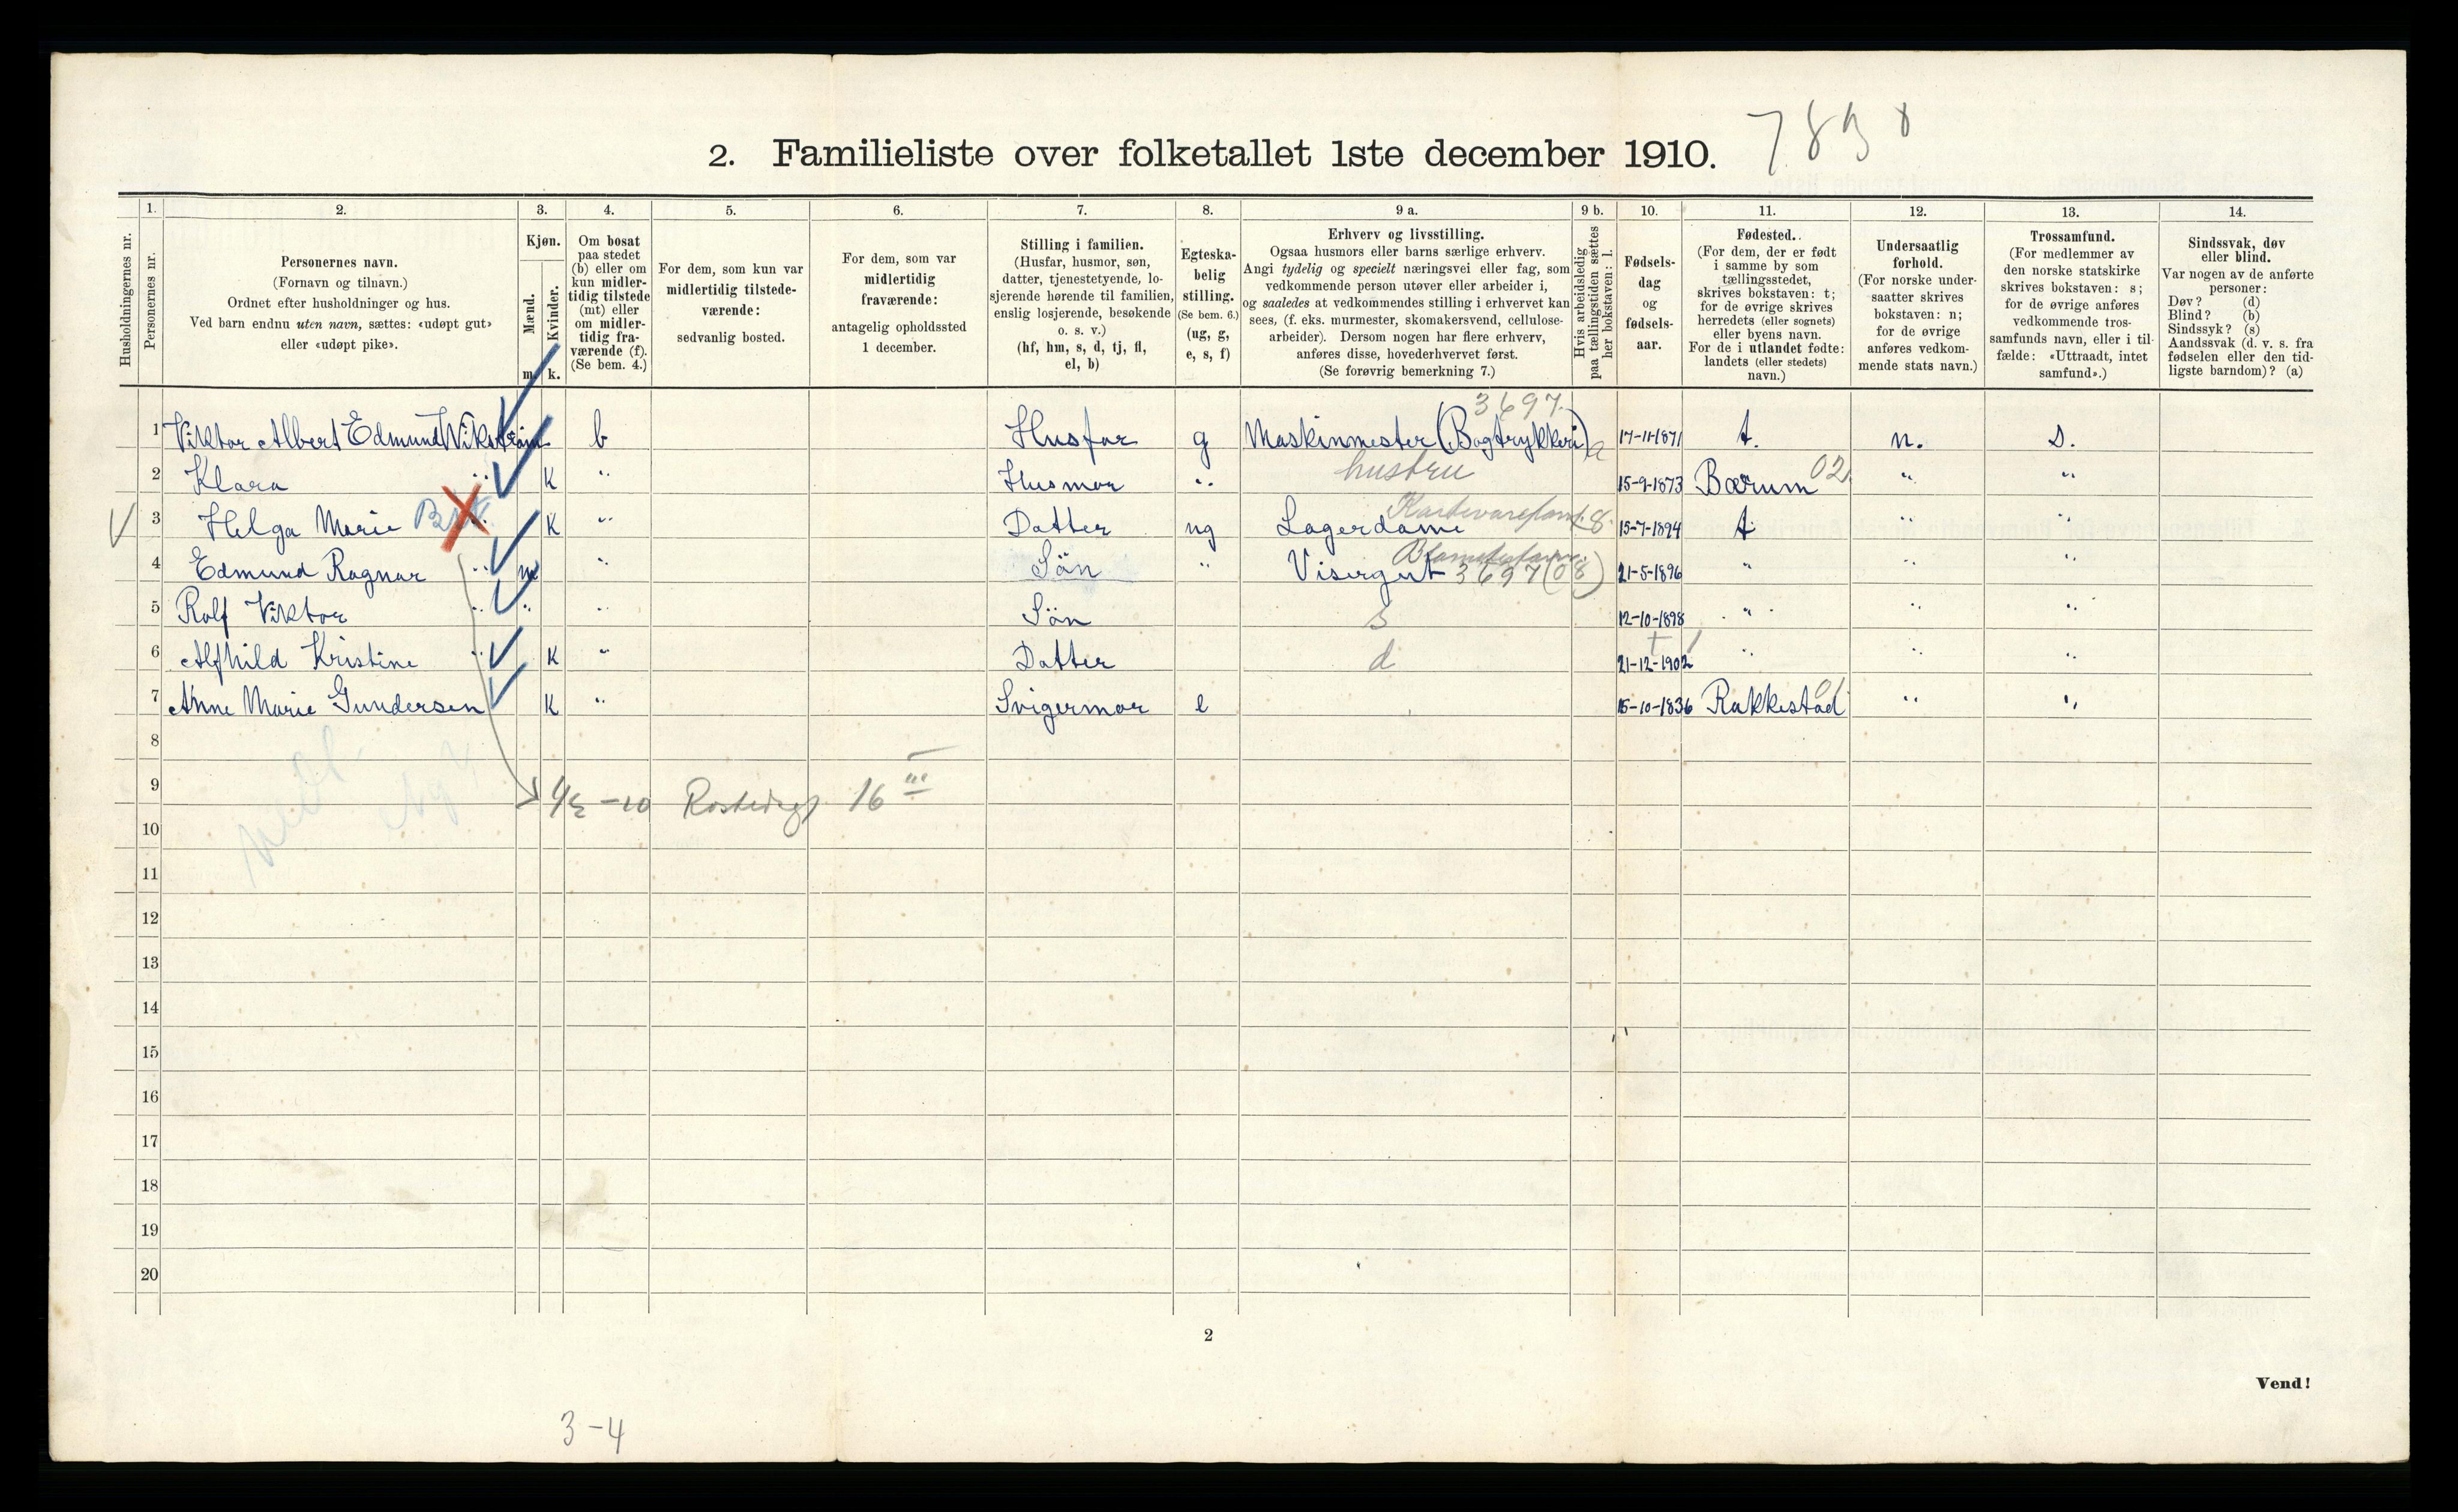 7838
2. Familieliste over folketallet 1ste december 1910.
Husholdningernes nr.
1. Personernes nr.
2. Personernes navn. (Fornavn og tilnavn.) Ordnet efter husholdninger og hus. Ved barn endnu uten navn, sættes: «udøpt gut» eller «udøpt pike».
3. Kjøn. Mænd. m. Kvinder. k.
4. Om bosat paa stedet (b) eller om kun midlertidig tilstede (mt) eller om midlertidig fraværende (f). (Se bem. 4.)
5. For dem, som kun var midlertidig tilstedeværende: sedvanlig bosted.
6. For dem, som var midlertidig fraværende: antagelig opholdssted 1 december.
7. Stilling i familien. (Husfar, husmor, søn, datter, tjenestetyende, losjerende hørende til familien, enslig losjerende, besøkende o. s. v.) (hf, hm, s, d, tj, fl, el, b)
8. Egteskabelig stilling. (Se bem. 6.) (ug, g, e, s, f)
9 a. Erhverv og livsstilling. Ogsaa husmors eller barns særlige erhverv. Angi tydelig og specielt næringsvei eller fag, som vedkommende person utøver eller arbeider i, og saaledes at vedkommendes stilling i erhvervet kan sees, (f. eks. murmester, skomakersvend, cellulosearbeider). Dersom nogen har flere erhverv, anføres disse, hovederhvervet først. (Se forøvrig bemerkning 7.)
9 b. Hvis arbeidsledig paa tællingstiden sættes her bokstaven: l.
10. Fødselsdag og fødselsaar.
11. Fødested. (For dem, der er født i samme by som tællingsstedet, skrives bokstaven: t; for de øvrige skrives herredets (eller sognets) eller byens navn. For de i utlandet fødte: landets (eller stedets) navn.)
12. Undersaatlig forhold. (For norske undersaatter skrives bokstaven: n; for de øvrige anføres vedkommende stats navn.)
13. Trossamfund. (For medlemmer av den norske statskirke skrives bokstaven: s; for de øvrige anføres vedkommende trossamfunds navn, eller i tilfælde: «Uttraadt, intet samfund».)
14. Sindssvak, døv eller blind. Var nogen av de anførte personer: Døv? (d) Blind? (b) Sindssyk? (s) Aandssvak (d. v. s. fra fødselen eller den tidligste barndom)? (a)
3697.
1 Viktor Albert Edmund Wikström b Husfar g Maskinmester (Bogtrykkeri) a 17-11-1871 t. n. s.
2 Klara " K " Husmor " hustru 15-9-1873 Bærum 02. " "
3 Helga Marie " K " Datter ug Lagerdame 8. 15-7-1894 t " "
4 Edmund Ragnar " m " Sön " Visergut 3697 (08) 21-5-1896 " " "
5 Rolf Viktor " " " Sön s 12-10-1898 " " "
6 Alfhild Kristine " K " Datter d 21-12-1902 " " "
7 Anne Marie Gundersen K " Svigermor e 15-10-1836 Rakkestad 01. " "
8
9 -10 16 III
10
11
12
13
14
15
16
17
18
19
20
2
Vend!
3-4